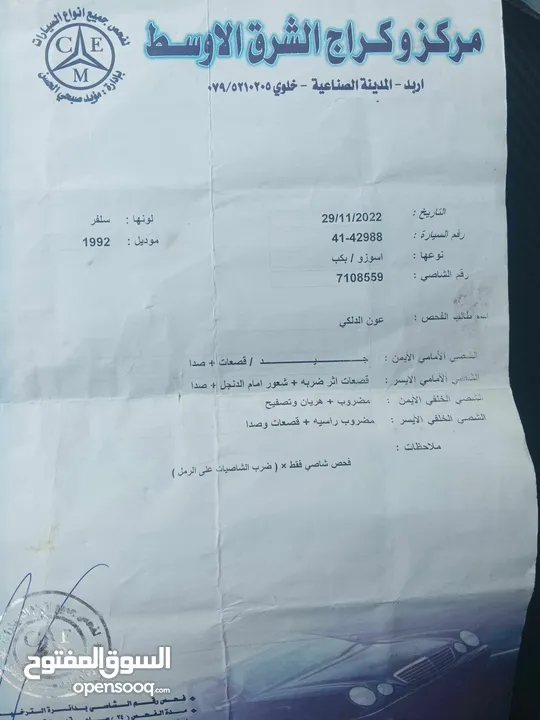 لفحص جميع انواع السيارات
C E M
بإدارة : مؤيد صبحي الحصن
مركز و كراج الشرق الاوسط
اربد - المدينة الصناعية - خلوي ٠٧٩/٥٢١٠٢٠٥
التاريخ : 29/11/2022 لونها : سلفر
رقم السيارة : 41-42988 موديل : 1992
نوعها : اسوزو / بكب
رقم الشاصي : 7108559
اسم طالب الفحص : عون الدلكي
الشصي الأمامي الايمن : جـــيـــد / قصعات + صدا
الشصي الأمامي الايسر : قصعات اثر ضربه + شعور امام الدنجل + صدا
الشصي الخلفي الايمن : مضروب + هريان وتصفيح
الشصي الخلفي الايسر : مضروب راسيه + قصعات وصدا
ملاحظات :
فحص شاصي فقط × ( ضرب الشاصيات على الرمل )
السوق المفتوح
opensooq.com
فحص رقم الشاصي بدائرة الترخيص
مدة الفحص (٢٤)